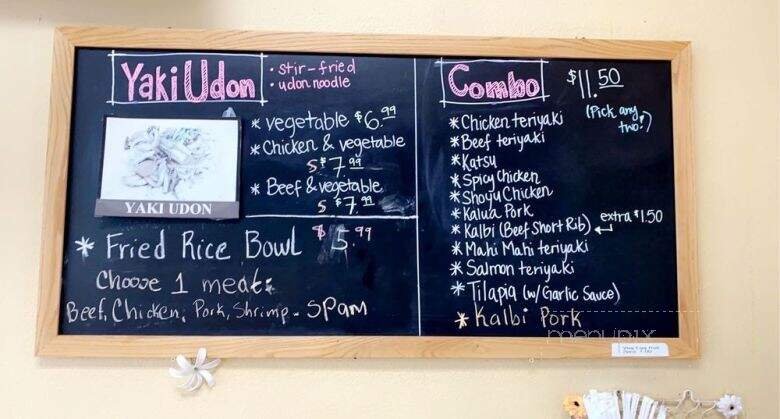 Yaki Udon
• stir-fried
• udon noodle
* vegetable $6.99
* Chicken & vegetable
$7.99
* Beef & vegetable
$7.99
YAKI UDON
* Fried Rice Bowl $5.99
Choose 1 meat:
Beef, Chicken, Pork, Shrimp - SPAM
Combo $11.50
(Pick any two!)
* Chicken teriyaki
* Beef teriyaki
* Katsu
* Spicy Chicken
* Shoyu Chicken
* Kalua Pork
* Kalbi (Beef Short Rib) extra $1.50
* Mahi Mahi teriyaki
* Salmon teriyaki
* Tilapia (w/ Garlic Sauce)
* Kalbi Pork
menupix